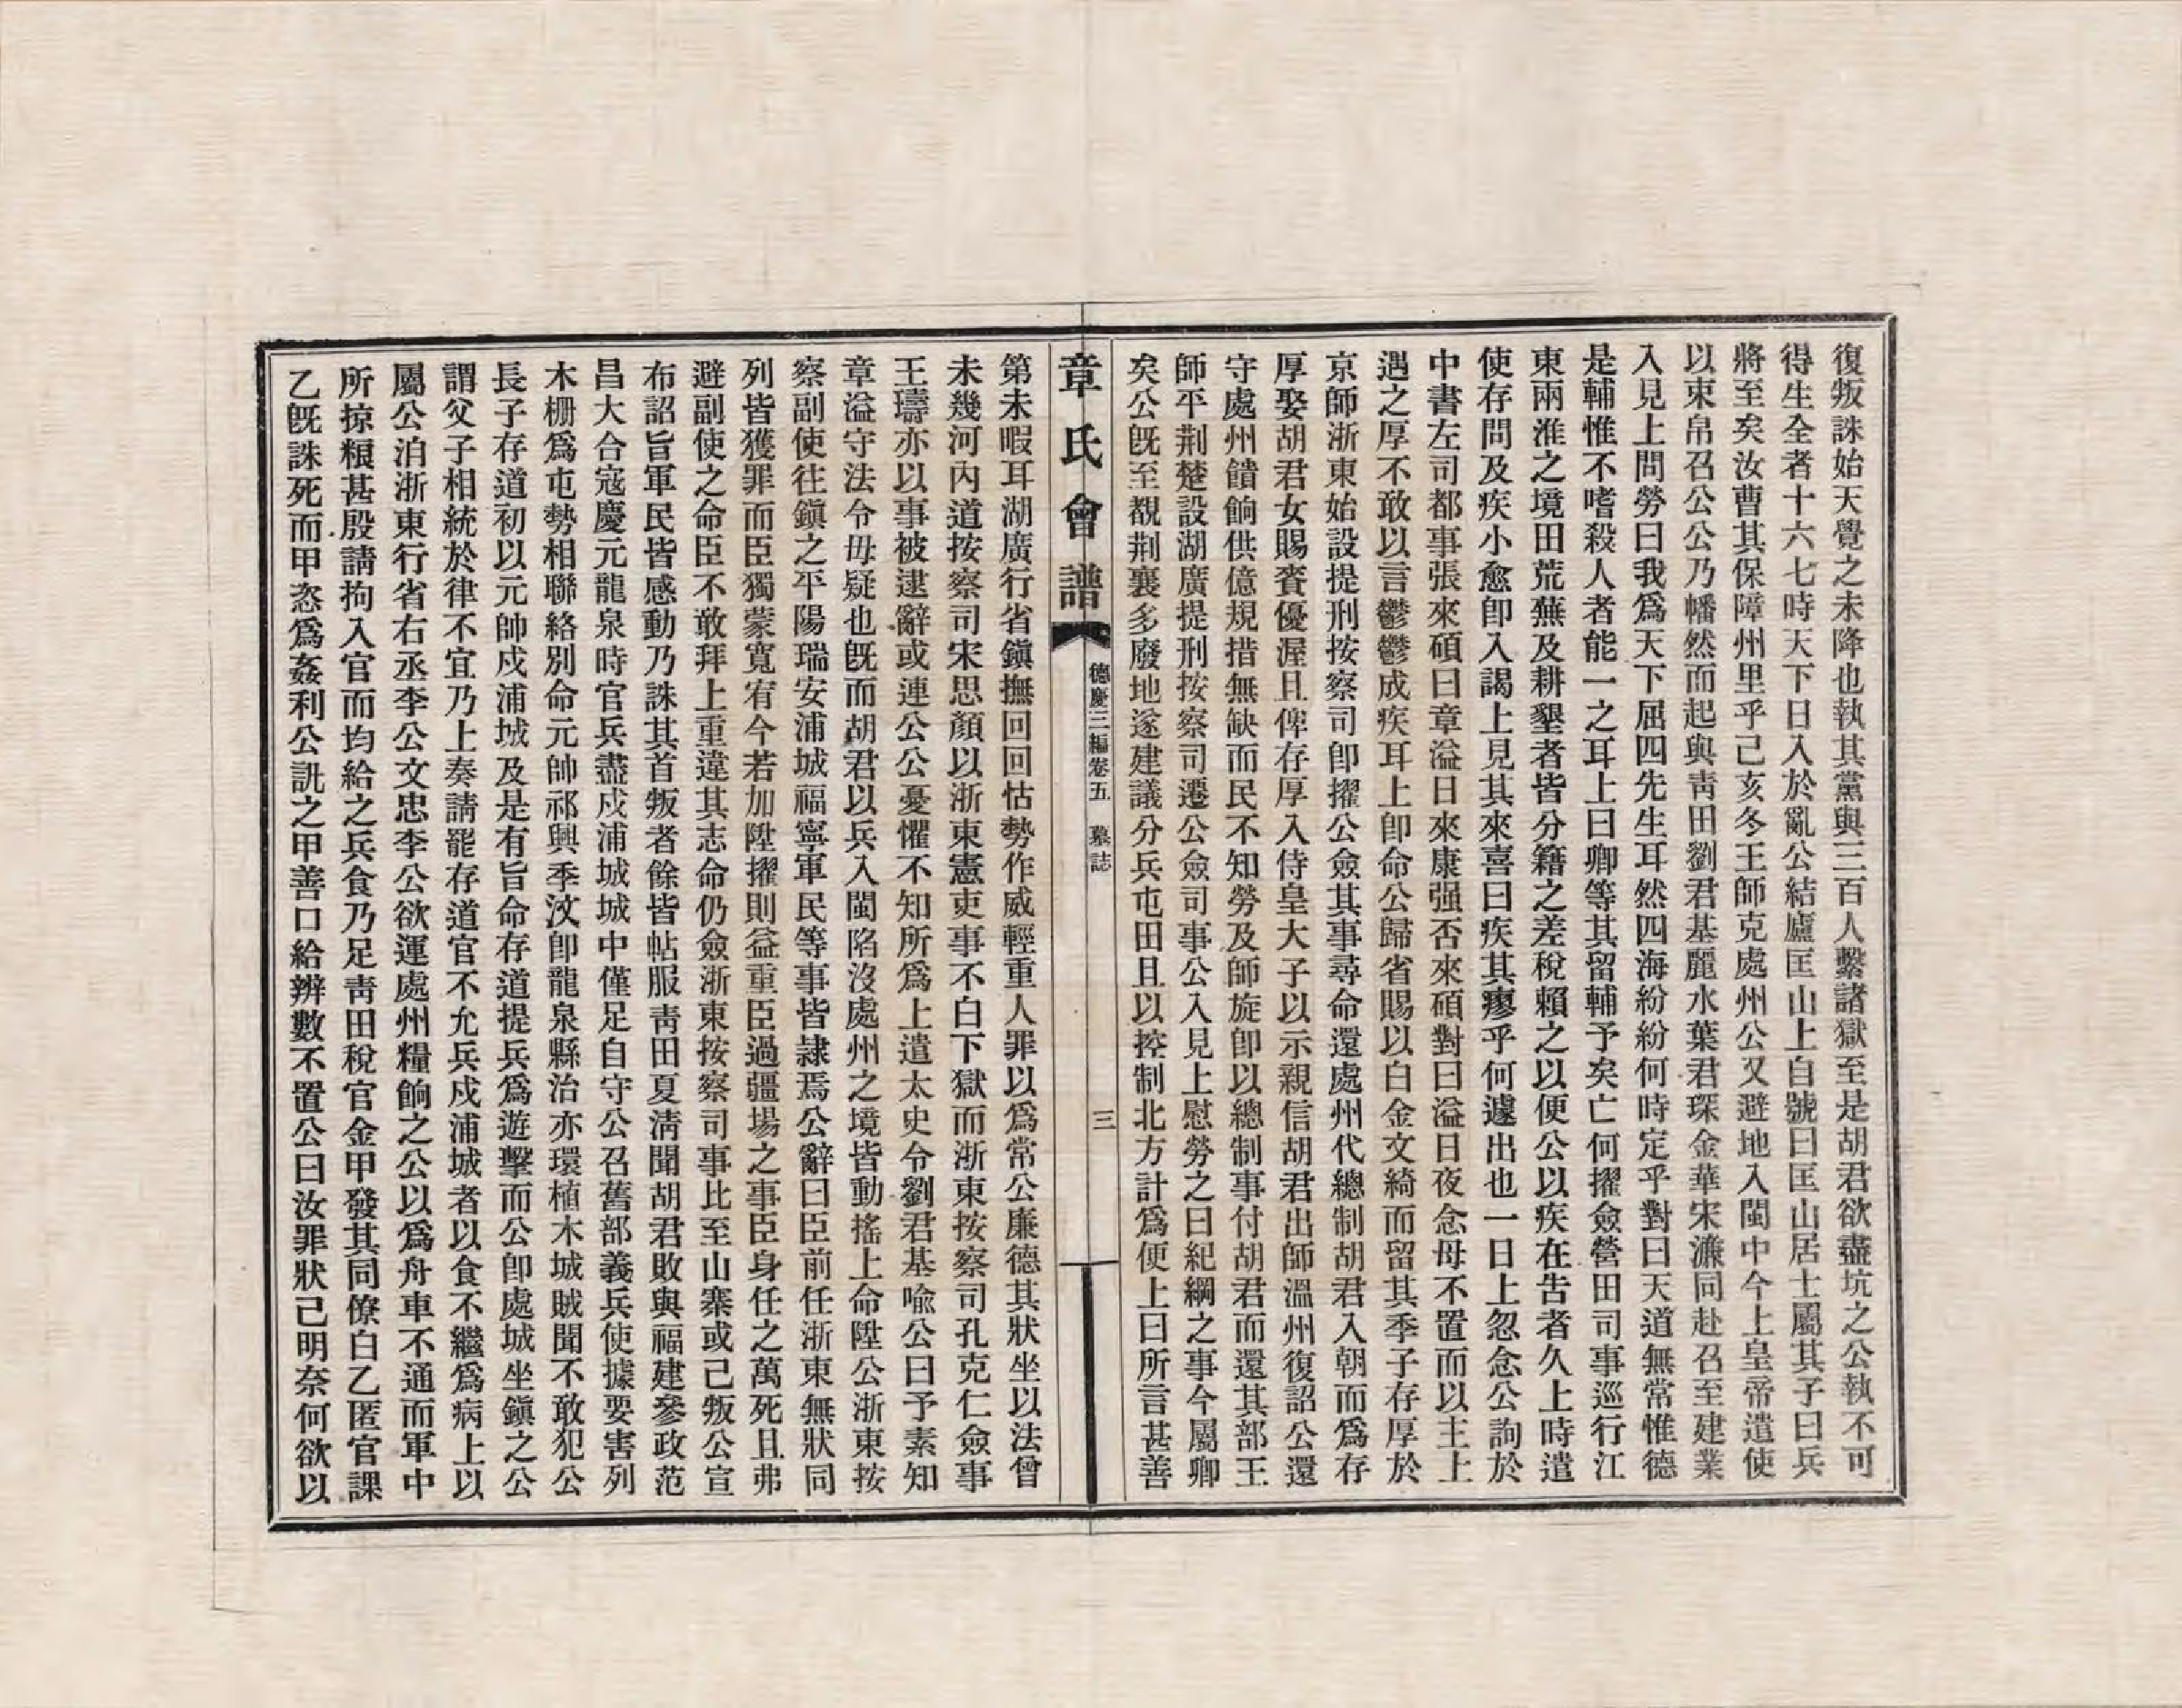 復叛誅始天覺之未降也執其黨與三百人繫諸獄至是胡君欲盡坑之公執不可
得生全者十六七時天下日入於亂公結廬匡山上自號曰匡山居士屬其子曰兵
將至矣汝曹其保障州里乎己亥冬王師克處州公又避地入閩中今上皇帝遣使
以束帛召公公乃幡然而起與靑田劉君基麗水葉君琛金華宋濂同赴召至建業
入見上問勞曰我爲天下屈四先生耳然四海紛紛何時定乎對曰天道無常惟德
是輔惟不嗜殺人者能一之耳上曰卿等其留輔予矣亡何擢僉營田司事巡行江
東兩淮之境田荒蕪及耕墾者皆分籍之差稅賴之以便公以疾在告者久上時遣
使存問及疾小愈卽入謁上見其來喜曰疾其瘳乎何遽出也一日上忽念公詢於
中書左司都事張來碩曰章溢日來康强否來碩對曰溢日夜念母不置而以主上
遇之厚不敢以言鬱鬱成疾耳上卽命公歸省賜以白金文綺而留其季子存厚於
京師浙東始設提刑按察司卽擢公僉其事尋命還處州代總制胡君入朝而爲存
厚娶胡君女賜賚優渥且俾存厚入侍皇大子以示親信胡君出師溫州復詔公還
守處州饋餉供億規措無缺而民不知勞及師旋卽以總制事付胡君而還其部王
師平荆楚設湖廣提刑按察司遷公僉司事公入見上慰勞之曰紀綱之事今屬卿
矣公旣至覩荆襄多廢地遂建議分兵屯田且以控制北方計爲便上曰所言甚善
章氏會譜
德慶三編卷五 墓誌
三
第未暇耳湖廣行省鎭撫回回怙勢作威輕重人罪以爲常公廉德其狀坐以法曾
未幾河內道按察司宋思顏以浙東憲吏事不白下獄而浙東按察司孔克仁僉事
王璹亦以事被逮辭或連公公憂懼不知所爲上遣太史令劉君基喩公曰予素知
章溢守法令毋疑也旣而胡君以兵入閩陷沒處州之境皆動搖上命陞公浙東按
察副使往鎭之平陽瑞安浦城福寧軍民等事皆隷焉公辭曰臣前任浙東無狀同
列皆獲罪而臣獨蒙寬宥今若加陞擢則益重臣過疆場之事臣身任之萬死且弗
避副使之命臣不敢拜上重違其志命仍僉浙東按察司事比至山寨或已叛公宣
布詔旨軍民皆感動乃誅其首叛者餘皆帖服靑田夏淸聞胡君敗與福建參政范
昌大合寇慶元龍泉時官兵盡戍浦城城中僅足自守公召舊部義兵使據要害列
木柵爲屯勢相聯絡別命元帥祁興季汶卽龍泉縣治亦環植木城賊聞不敢犯公
長子存道初以元帥戍浦城及是有旨命存道提兵爲遊擊而公卽處城坐鎭之公
謂父子相統於律不宜乃上奏請罷存道官不允兵戍浦城者以食不繼爲病上以
屬公泊浙東行省右丞李公文忠李公欲運處州糧餉之公以爲舟車不通而軍中
所掠粮甚殷請拘入官而均給之兵食乃足靑田稅官金甲發其同僚白乙匿官課
乙旣誅死而甲恣爲姦利公訊之甲善口給辨數不置公曰汝罪狀已明奈何欲以